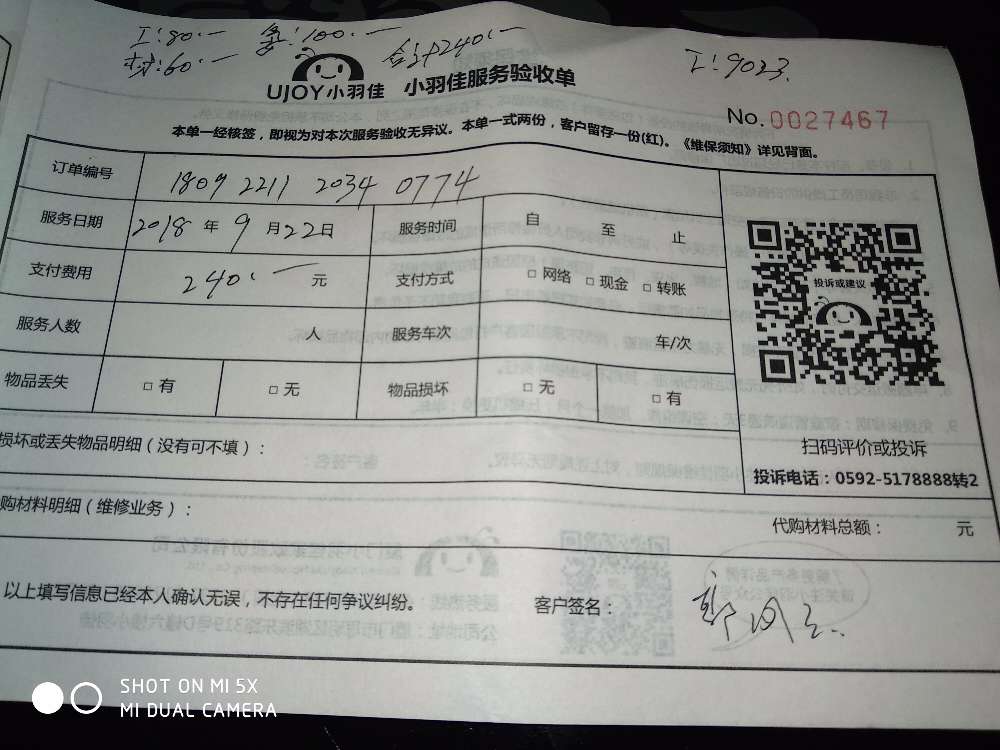 工:80.一 :100.一
材:60.一 合计240.一 工:9023.
UJOY小羽佳 小羽佳服务验收单
No.0027467
本单一经核签，即视为对本次服务验收无异议。本单一式两份，客户留存一份(红)。《维保须知》详见背面。
订单编号 1809 2211 2034 0774
服务日期 2018年9月22日 服务时间 自 至 止
支付费用 240.一 元 支付方式 □ 网络 □ 现金 □ 转账
投诉或建议
服务人数 人 服务车次 车/次
物品丢失 □ 有 □ 无 物品损坏 □ 无 □ 有
损坏或丢失物品明细（没有可不填）：
扫码评价或投诉
投诉电话：0592-5178888转2
购材料明细（维修业务）：
代购材料总额： 元
以上填写信息已经本人确认无误，不存在任何争议纠纷。 客户签名：
SHOT ON MI 5X
MI DUAL CAMERA